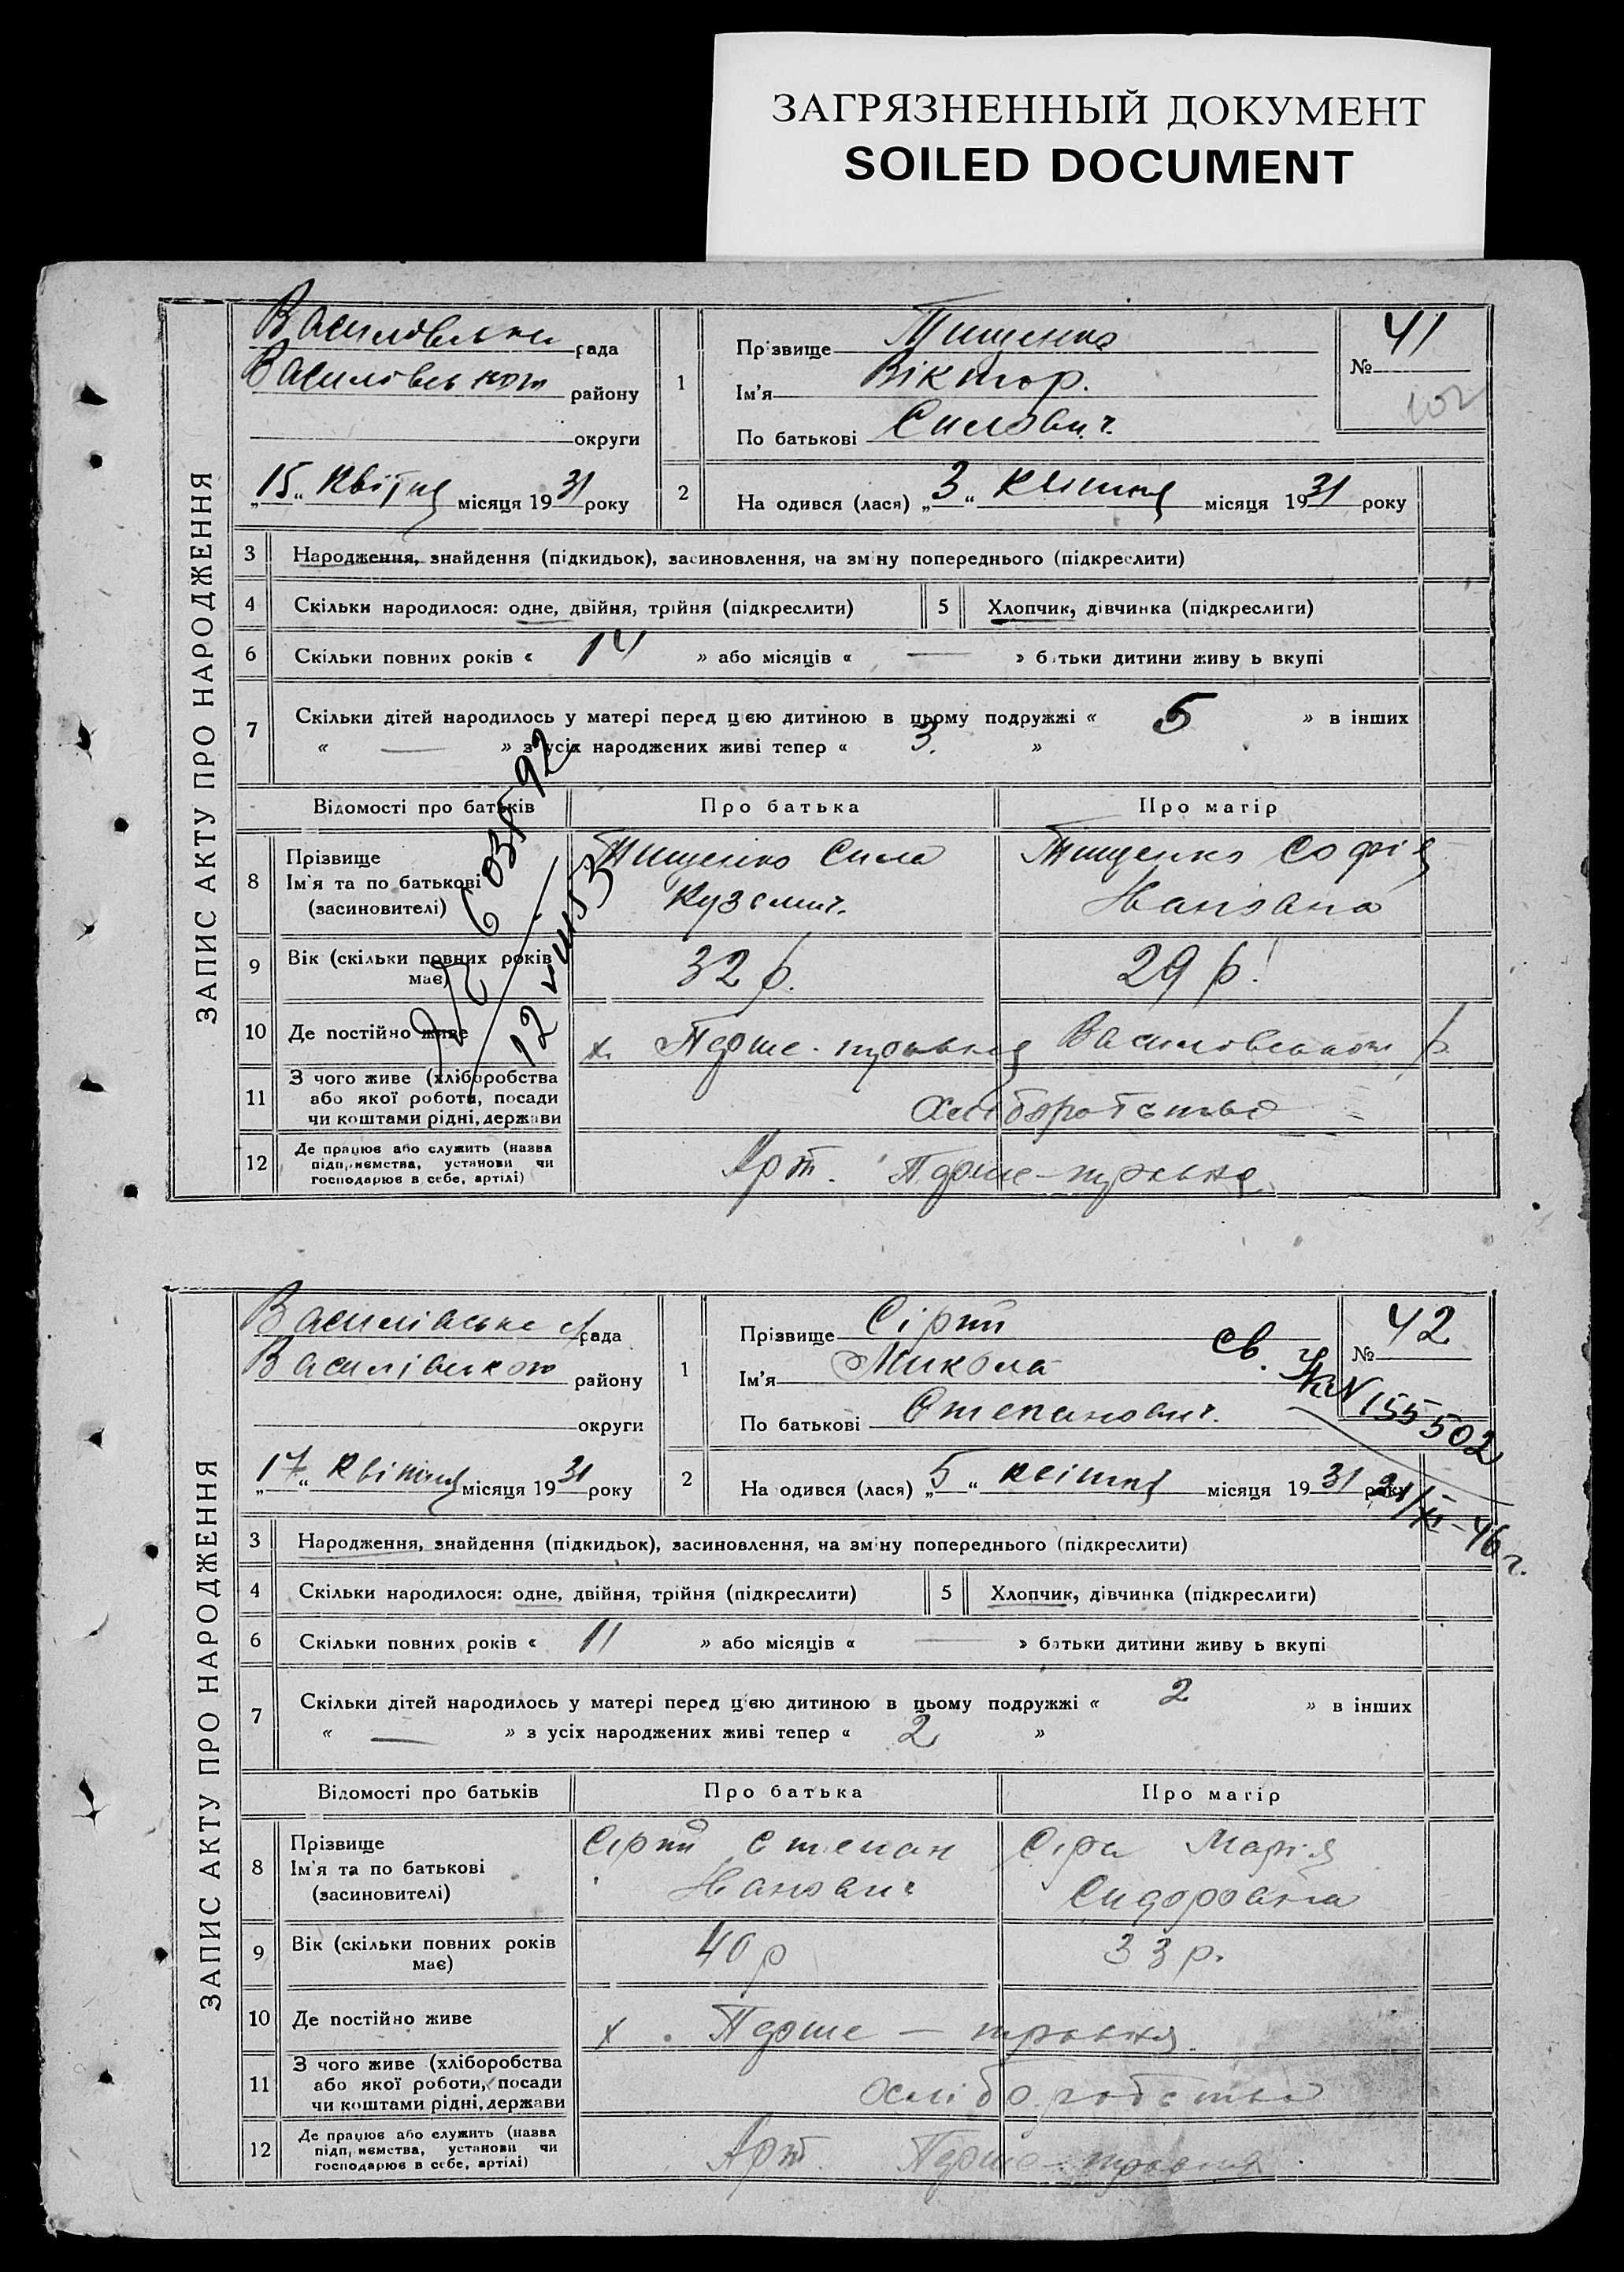 ЗАГРЯЗНЕННЫЙ ДОКУМЕНТ
SOILED DOCUMENT
ЗАПИС АКТУ ПРО НАРОДЖЕННЯ
Василівська рада
Василівського району
округи
„15“ Квітня місяця 1931 року
1
Прізвище Тищенко
Ім'я Віктор.
По батькові Силович.
№ 41
102
2
На одився (лася) „3“ квітня місяця 1931 року
3 Народження, знайдення (підкидьок), засиновлення, на зміну попереднього (підкреслити)
4 Скільки народилося: одне, двійня, трійня (підкреслити)
5 Хлопчик, дівчинка (підкреслити)
6 Скільки повних років « 14 » або місяців « — » батьки дитини живуть вкупі
7 Скільки дітей народилось у матері перед цією дитиною в цьому подружжі « 5 » в інших
« — » з усіх народжених живі тепер « 3. »
Відомості про батьків
Про батька
Про матір
8 Прізвище
Ім'я та по батькові
(засиновителі)
Тищенко Сила
Кузьмич.
Тищенко Софія
Іванівна
9 Вік (скільки повних років
має)
32 р.
29 р.
10 Де постійно живе
х. Перше-травня Василівського р.
11 З чого живе (хліборобства
або якої роботи, посади
чи коштами рідні, держави
Хліборобство
12 Де працює або служить (назва
підприємства, установи чи
господарює в себе, артілі)
Арт. Перше-травня
ЗАПИС АКТУ ПРО НАРОДЖЕННЯ
Василівська с/рада
Василівського району
округи
„17“ Квітня місяця 1931 року
1
Прізвище Сірий
Ім'я Микола
По батькові Степанович.
№ 42
св.
N 155502
21/XI-46 г.
2
На одився (лася) „5“ квітня місяця 1931 року
3 Народження, знайдення (підкидьок), засиновлення, на зміну попереднього (підкреслити)
4 Скільки народилося: одне, двійня, трійня (підкреслити)
5 Хлопчик, дівчинка (підкреслити)
6 Скільки повних років « 11 » або місяців « — » батьки дитини живуть вкупі
7 Скільки дітей народилось у матері перед цією дитиною в цьому подружжі « 2 » в інших
« — » з усіх народжених живі тепер « 2 »
Відомості про батьків
Про батька
Про матір
8 Прізвище
Ім'я та по батькові
(засиновителі)
Сірий Степан
Іванович
Сіра Марія
Сидоровна
9 Вік (скільки повних років
має)
40 р
33 р.
10 Де постійно живе
х. Перше — травня
11 З чого живе (хліборобства
або якої роботи, посади
чи коштами рідні, держави
Хліборобство
12 Де працює або служить (назва
підприємства, установи чи
господарює в себе, артілі)
Арт. Перше-травня